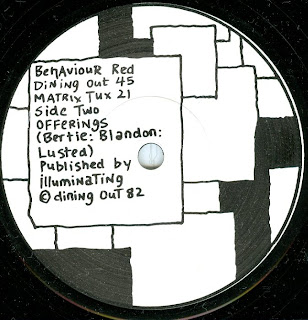 BeHAviouR Red
Dining Out 45
MATRix Tux 21
Side Two
OFFERINGS
(Bertie: Blandon:
Lusted)
Published by
illuminaTing
© dining OuT 82